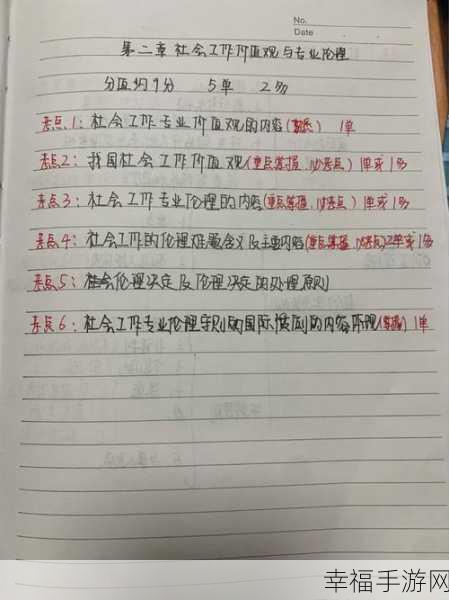 No.
Date
第二章 社会工作价值观与专业伦理
分值约9分 5单 2多
考点1: 社会工作专业价值观的内容(熟悉) 1单
考点2: 我国社会工作价值观(重点掌握,必考点)1单或1多
考点3: 社会工作专业伦理的内容(重点掌握,必考点)1单或1多
考点4: 社会工作的伦理难题含义及主要内容(重点掌握,必考点)2单或1多
考点5: 社会伦理决定及伦理决定的处理原则
考点6: 社会工作专业伦理守则的国际惯例的内容体现(掌握)1单
幸福手游网